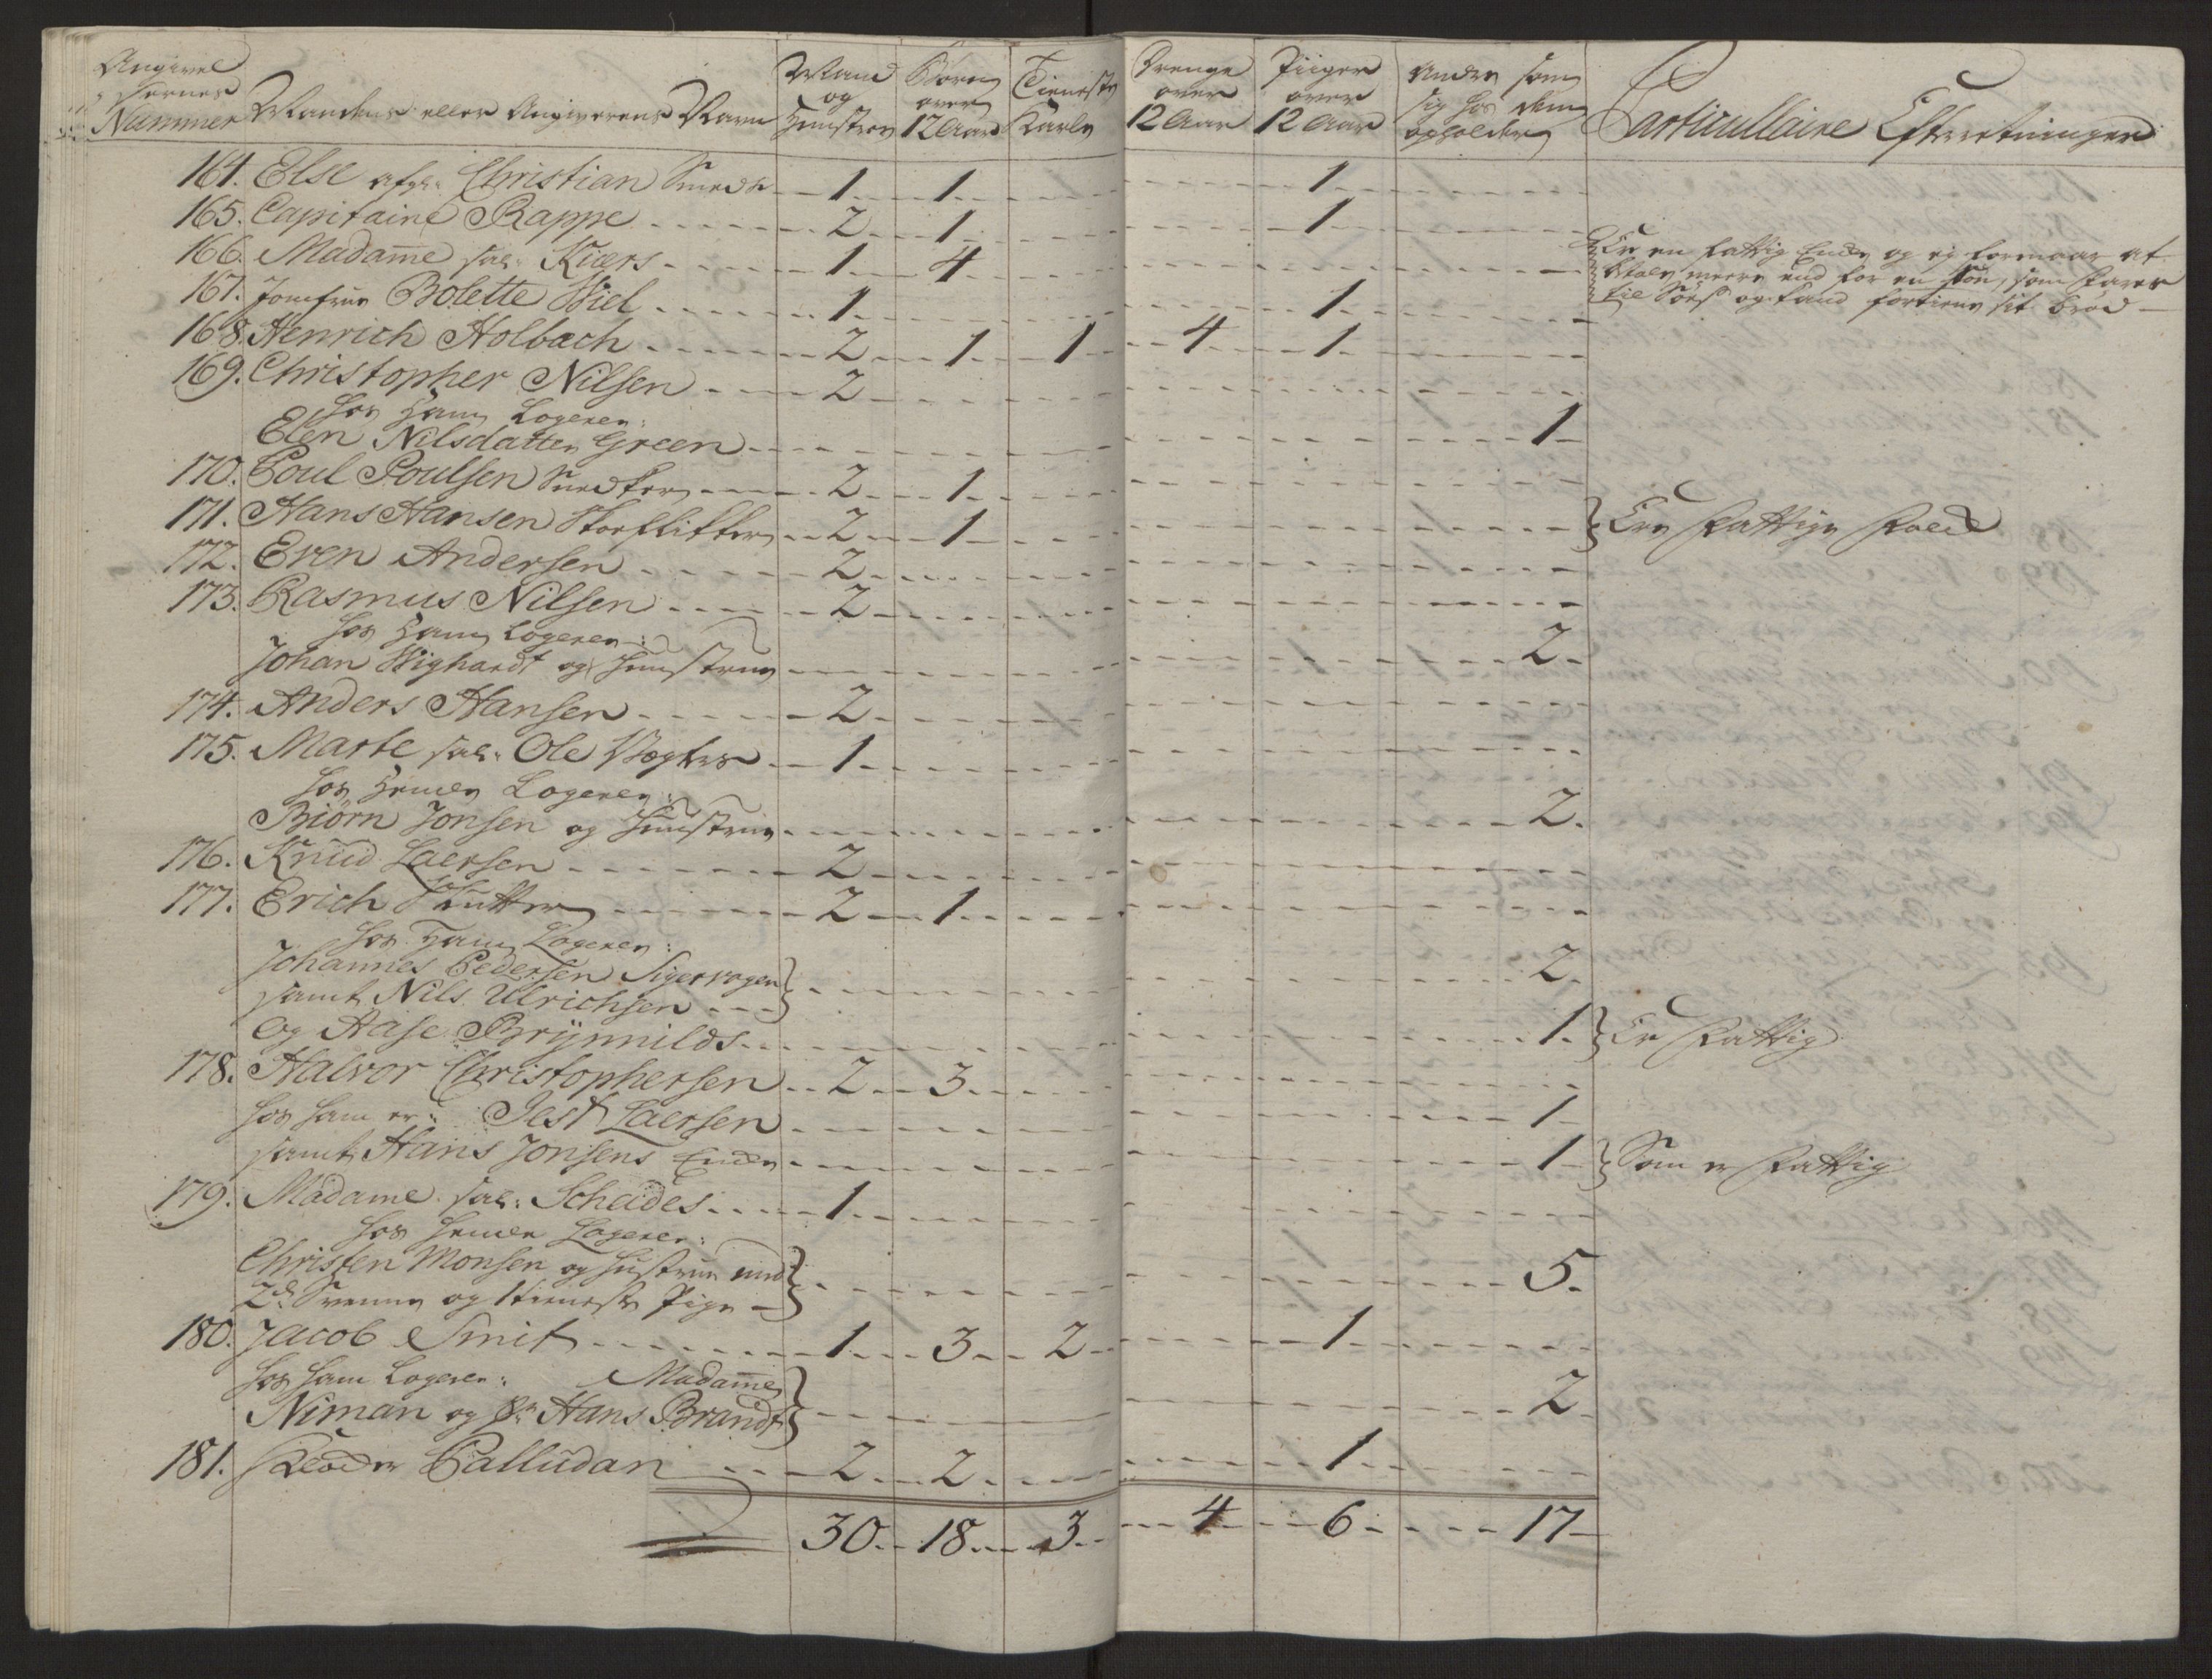 Angivel
sernes
Nummer Mandens eller Angiverens Navn Mand og Hustrue Børn over 12 Aar Tieneste Karle Drenge over 12 Aar Piiger over 12 Aar Andre som sig hos dem opholder Particullaire Efterretninger
164. Else afg: Christian Smeds 1 1 1
165. Capitaine Rappe 2 1 1
166. Madame sal: Kiærs 1 4 Er en fattig Enke og ej formaar at
betale meere end for en Søn, som farer
til Søes og kand fortiene sit brød
167. Jomfrue Bolette Wiel 1 1
168. Henrich Holbach 2 1 1 4 1
169. Christopher Nilsen 2
hos ham Logerer:
Elen Nilsdatter Green 1
170. Poul Poulsen Snedker 2 1
171. Hans Hansen Skoeflikker 2 1 Ere fattige folck
172. Even Andersen 2
173. Rasmus Nilsen 2
hos ham Logerer:
Johan Wighardt og Hustrue 2
174. Anders Hansen 2
175. Marte sal: Ole Vegters 1
hos hende Logerer:
Biørn Jonsen og Hustrue 2
176. Knud Laersen 2
177. Erich Skutter 2 1
hos ham Logerer:
Johannes Pedersen Sigersvogen
samt Nils Ulrichsen 2
og Aase Brynnilds 1 Er fattig
178. Halvor Christophersen 2 3
hos ham er: Jest Laersen 1
samt Hans Jonsens Enke 1 Som er fattig
179. Madame sal: Scheides 1
hos hende Logerer:
Christen Monsen og Hustrue med
2de Svenne og 1 tieneste Pige 5
180. Jacob Smit 1 3 2 1
hos ham Logerer: Madame
Niman og Sr Hans Brandt 2
181. Palludan 2 2 1
30 18 3 4 6 17